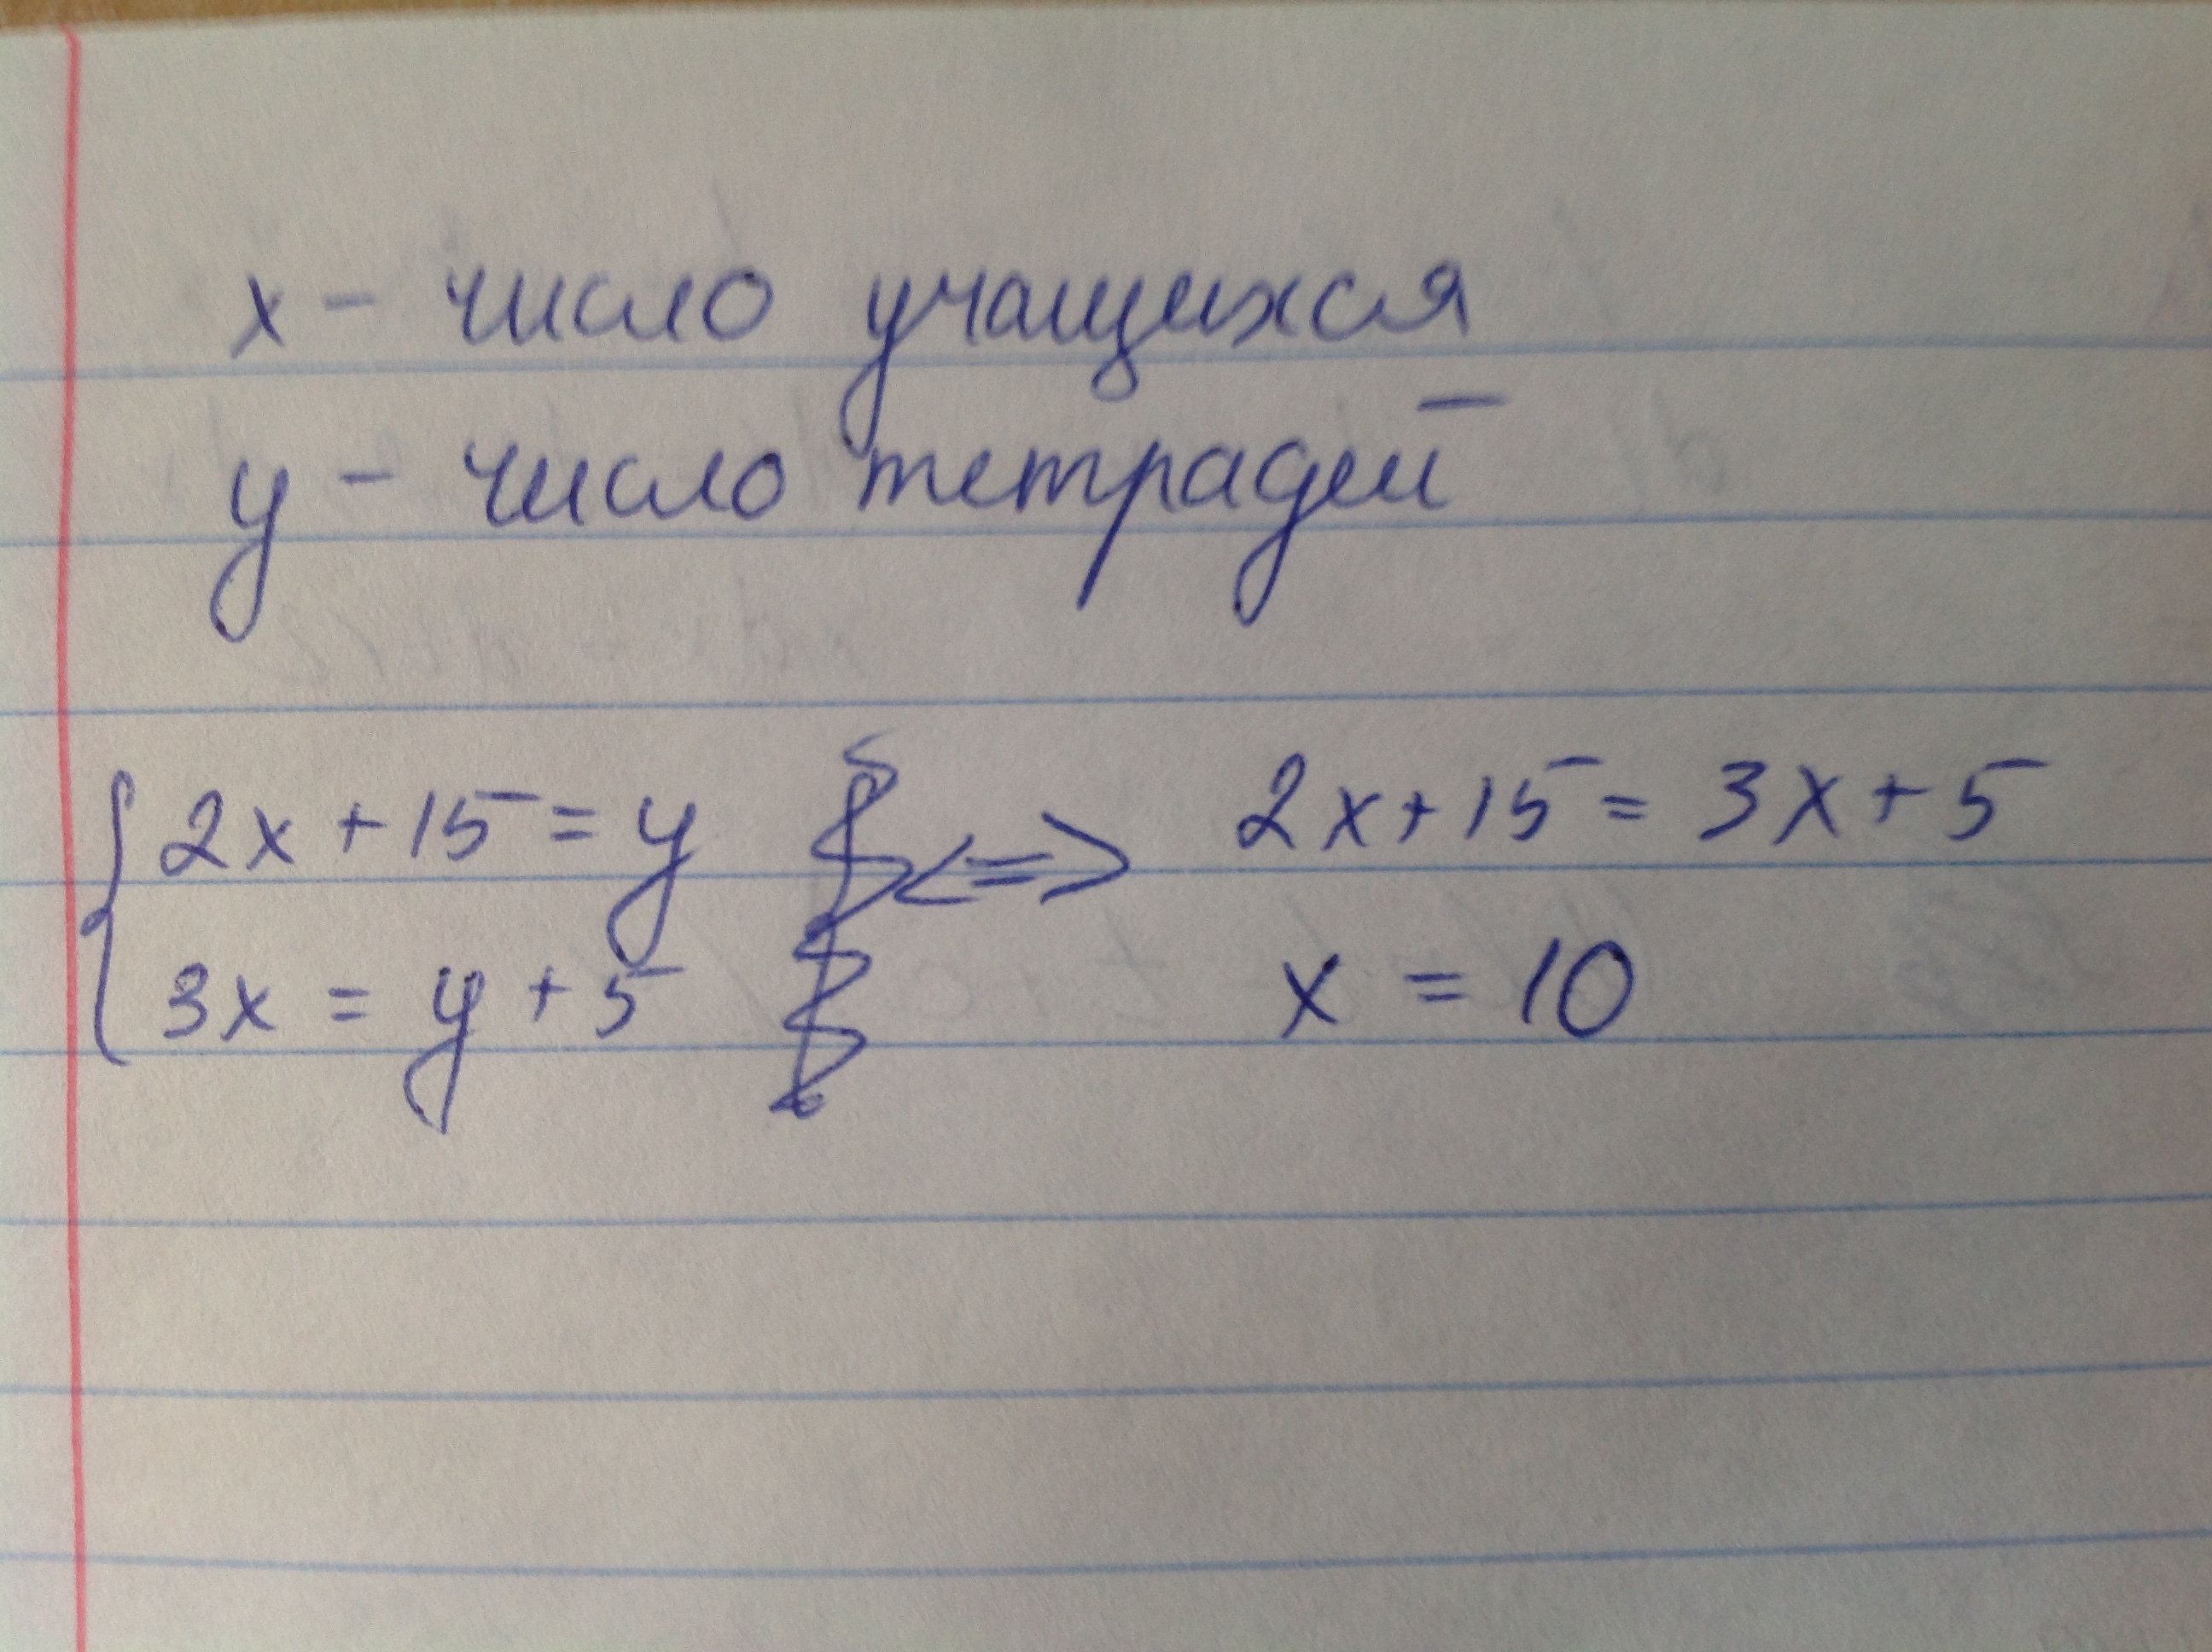 x - число учащихся
y - число тетрадей
2x + 15 = y <=> 2x + 15 = 3x + 5
3x = y + 5 x = 10